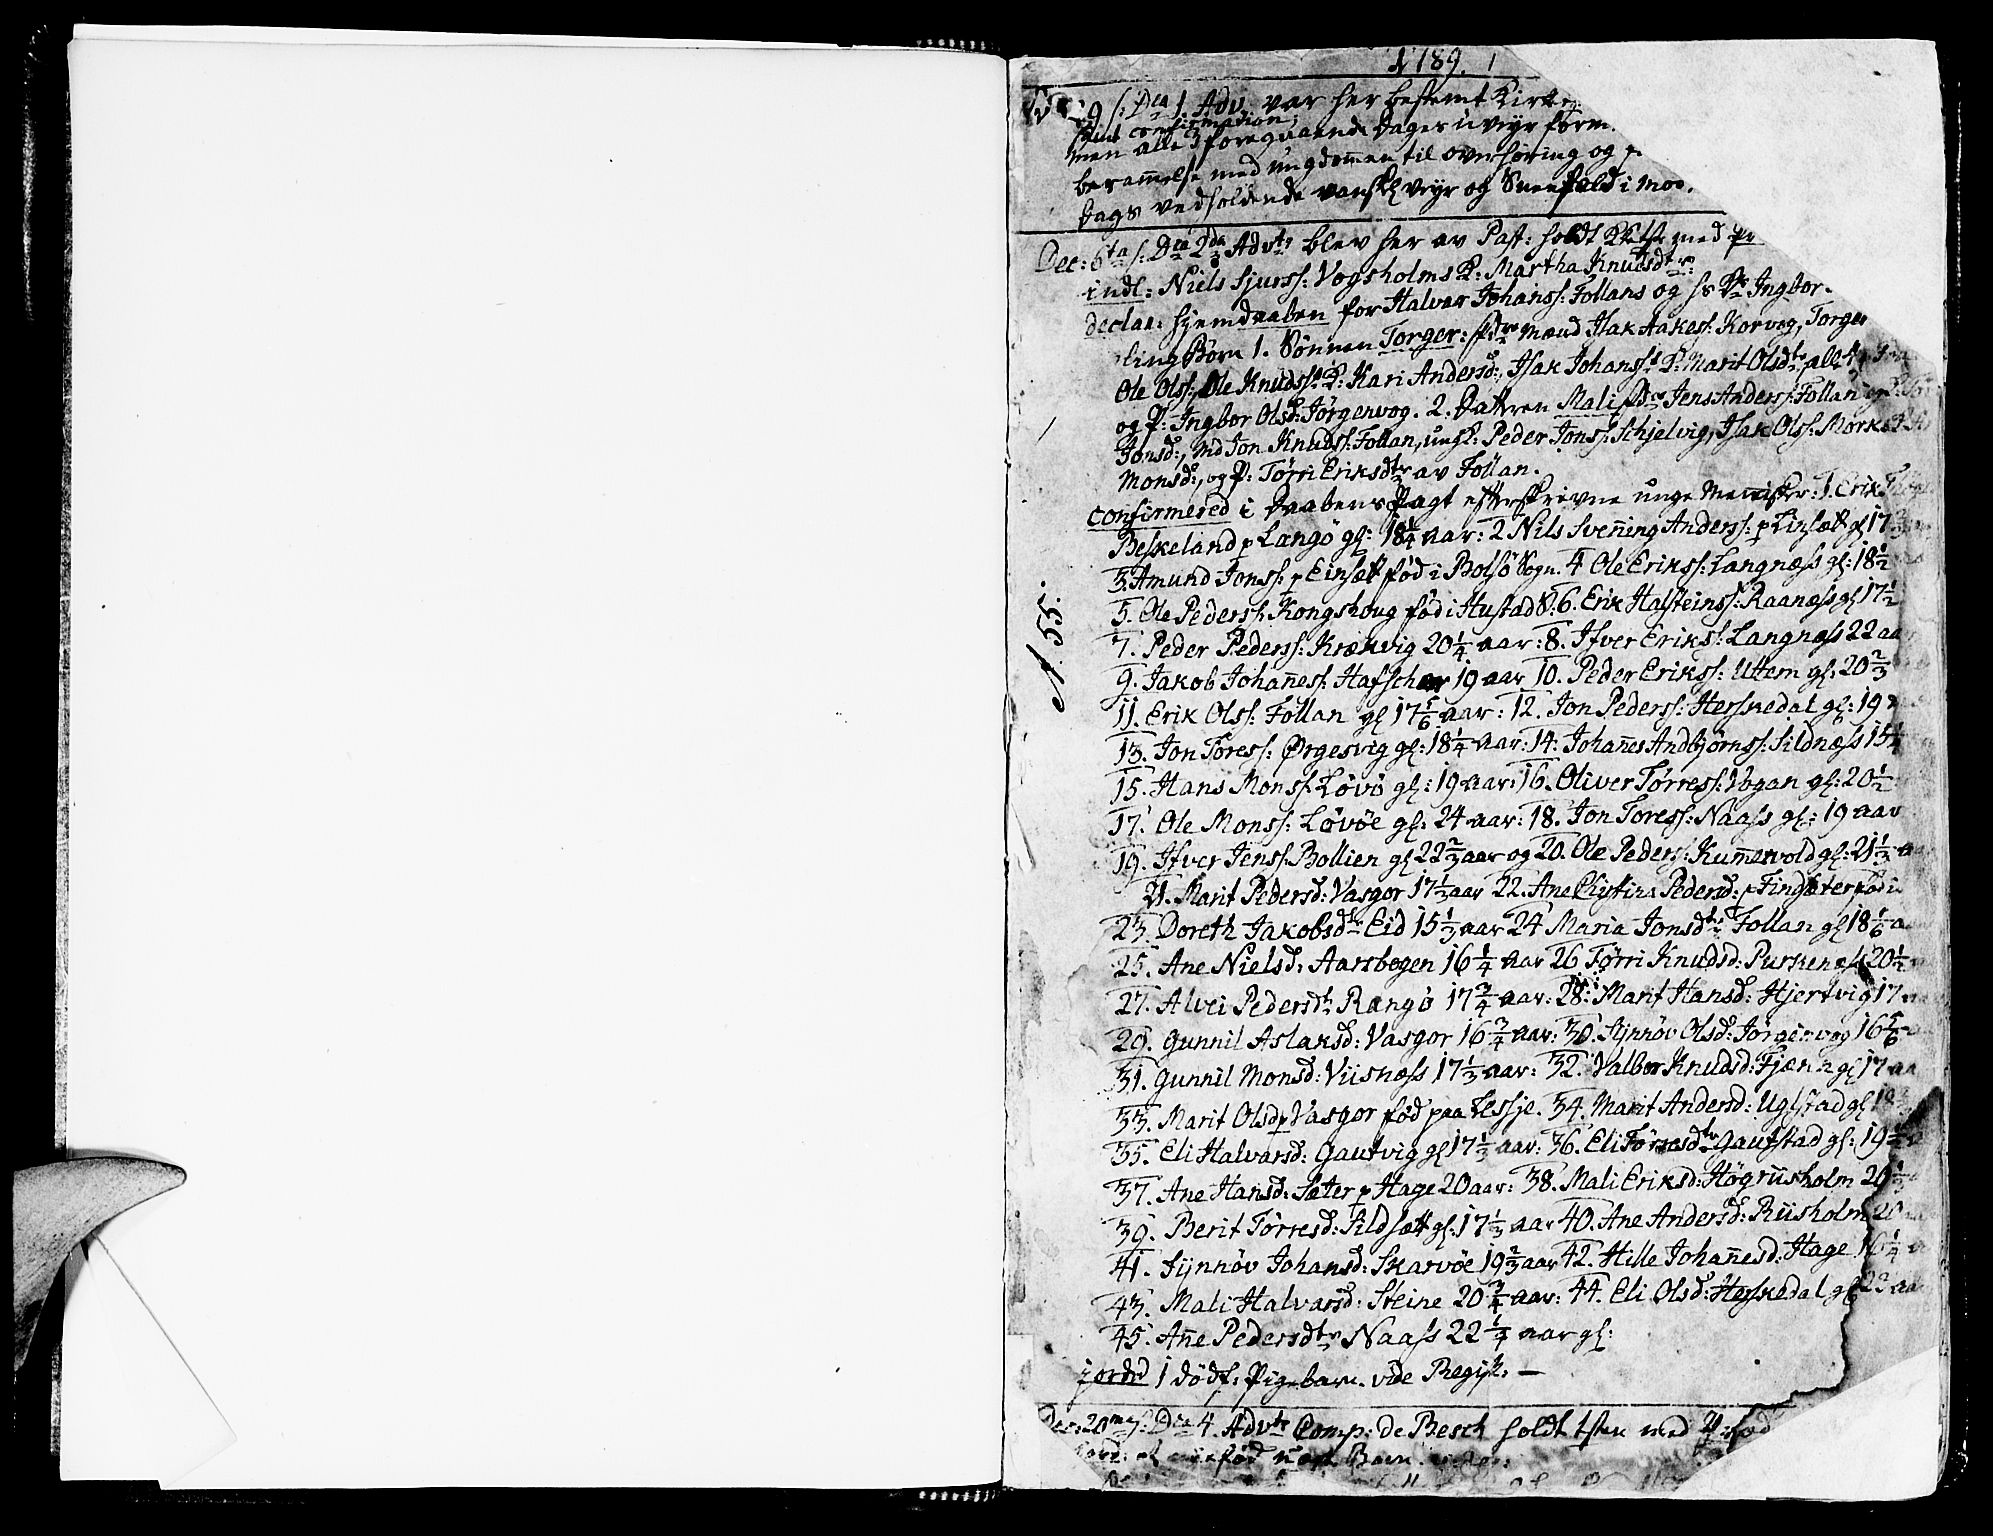 1789. 1
9 s: Dca 1. Adv. var her bestemt Kirke
samt confirmation;
men alle 3 foregaaende Dages uveyr form
berammelse med ungdommen til overhøring og
Dags vedholdende vanskl veyr og Sneefald i mod
Dec: 6ta s: Dca 2da Advts blev her av Past: holdt med pr
indl: Niels Sjurss: Vogsholms K: Martha Knudsdtr:
declar: hjemdaaben for Halvar Johanss: Follans og hs Ks Ingbor
ling Børn 1. Sønnen Torger: fdre Mænd Isak Aakess: Korvog, Torger
Ole Olss:, Ole Knudss: K: Kari Andersd:, Isak Johanss: K: Marit Olsdtr, alle
og P: Ingbor Olsd: Jørgenvog. 2. Datteren Mali fdre Jens Anderss: Follan og
Jonsd:, Md Jon Knudss: Follan, ungk: Peder Jonss: Schjelvig, Isak Olss: Mork
Monsd:, og P: Tørri Eriksdtr av Follan.
confirmered i Daabens Pagt efterskrevne unge Menisker: 1. Erik
Beskeland p Langø gl: 18¼ aar: 2 Nils Svenning Anderss: p Linset gl 17
3. Amund Jonss: p Einset fød i Bolsø Sogn. 4 Ole Erikss: Langnæss gl: 18½
5. Ole Pederss: Kongshoug fød i Hustad S: 6. Erik Halsteinss: Raanæss gl 17½
7. Peder Pederss: Krækvig 20¼ aar: 8. Ifver Erikss: Langnæss 22 aa
9. Jakob Johanness: Hafschar 19 aar 10. Peder Erikss: Uttem gl: 20⅔
11. Erik Olss: Follan gl 17⅙ aar: 12. Jon Pederss: Herskedal gl: 19
13. Jon Toress: Ørgesvig gl: 18¼ aar: 14. Johannes Andbjørnss: Sildnæss 15¼
15. Hans Monss: Løvø gl: 19 aar: 16. Oliver Tørress: Vogan gl: 20½
17. Ole Monss: Løvøe gl: 24 aar: 18. Jon Toress: Naass gl: 19 aar
19. Ifver Jenss: Bollien gl 22⅔ aar og 20. Ole Pederss: Kummervold gl: 21⅓
21. Marit Pedersd: Vasgor 17⅓ aar 22. Ane Christina Pedersd: p Findsæter fød i
23. Doreth Jakobsdtr Eid 15⅓ aar 24 Maria Jonsdtr Follan gl 18⅙ a
25. Ane Nielsd: Aarsbogen 16¼ aar 26 Tørri Knudsd: Purkenæs 20½
27. Alvei Pedersdtr Rangø 17¾ aar: 28: Marit Hansd: Hjertvig 17
29. Gunnil Aslaksd: Vasgor 16¾ aar: 30. Synnøv Olsd: Jørgenvog 16⅚
31. Gunnil Monsd: Viisnæss 17⅓ aar: 32. Valbor Knudsd: Fjæren gl 17 aa
33. Marit Olsd p Vasgor fød paa Lesje. 34. Marit Andersd: Uglstad gl
35. Eli Halvarsd: Gautvig gl 17⅓ aar: 36. Eli Tørresdtr Gautstad gl: 19½
37. Ane Hansd: Sæter p Hage 20 aar: 38. Mali Eriksd: Høgrusholm 20⅓
39. Berit Tørresd: Sildsæt gl: 17⅓ aar 40. Ane Andersd: Riisholm 20
41. Synnøv Johansd: Skarvøe 19⅔ aar 42. Hille Johannesd: Hage 16¼ a
43. Mali Halvarsd: Steine 20¾ aar: 44. Eli Olsd: Herskedal gl 22 aa
45. Anne Pedersdtr Naass 22¼ aar gl:
jorded 1 dødf: Pigebarn. vide Regist: —
Dec: 20me s: Dca 4. Advts Comp: de Besch holdt tsten med
fød Barn
№ 55.